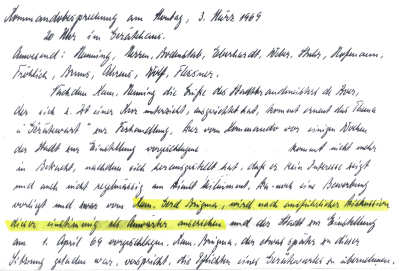 Kommandobesprechung am Montag, 3. März 1969
20 Uhr im Gerätehaus.
Anwesend: Henning, Herren, Bodenstab, Eberhardt, Hofmann,
Fröhlich, Bruns, Ahrens, Wolf, Flessner.
Nachdem Kam. Henning die Grüße des Stadtbrandmeisters de Boer,
der sich z. Zt einer Kur unterzieht, ausgerichtet hat, kommt erneut das Thema
"Gerätewart" zur Verhandlung. Der vom Kommando vor einigen Wochen
der Stadt zur Einstellung vorgeschlagene kommt nicht mehr
in Betracht, nachdem sich herausgestellt hat, daß er kein Interesse zeigt
und auch nicht regelmässig am Dienst teilnimmt. Da noch eine Bewerbung
vorliegt und zwar vom Kam. Gerd Brügma, wird nach ausführlicher Diskussion
dieser einstimmig als Anwärter angesehen und der Stadt zur Einstellung
am 1. April 69 vorgeschlagen. Kam. Brügma, der etwas später zu dieser
Sitzung geladen war, verspricht, die Pflichten eines Gerätewartes zu übernehmen.